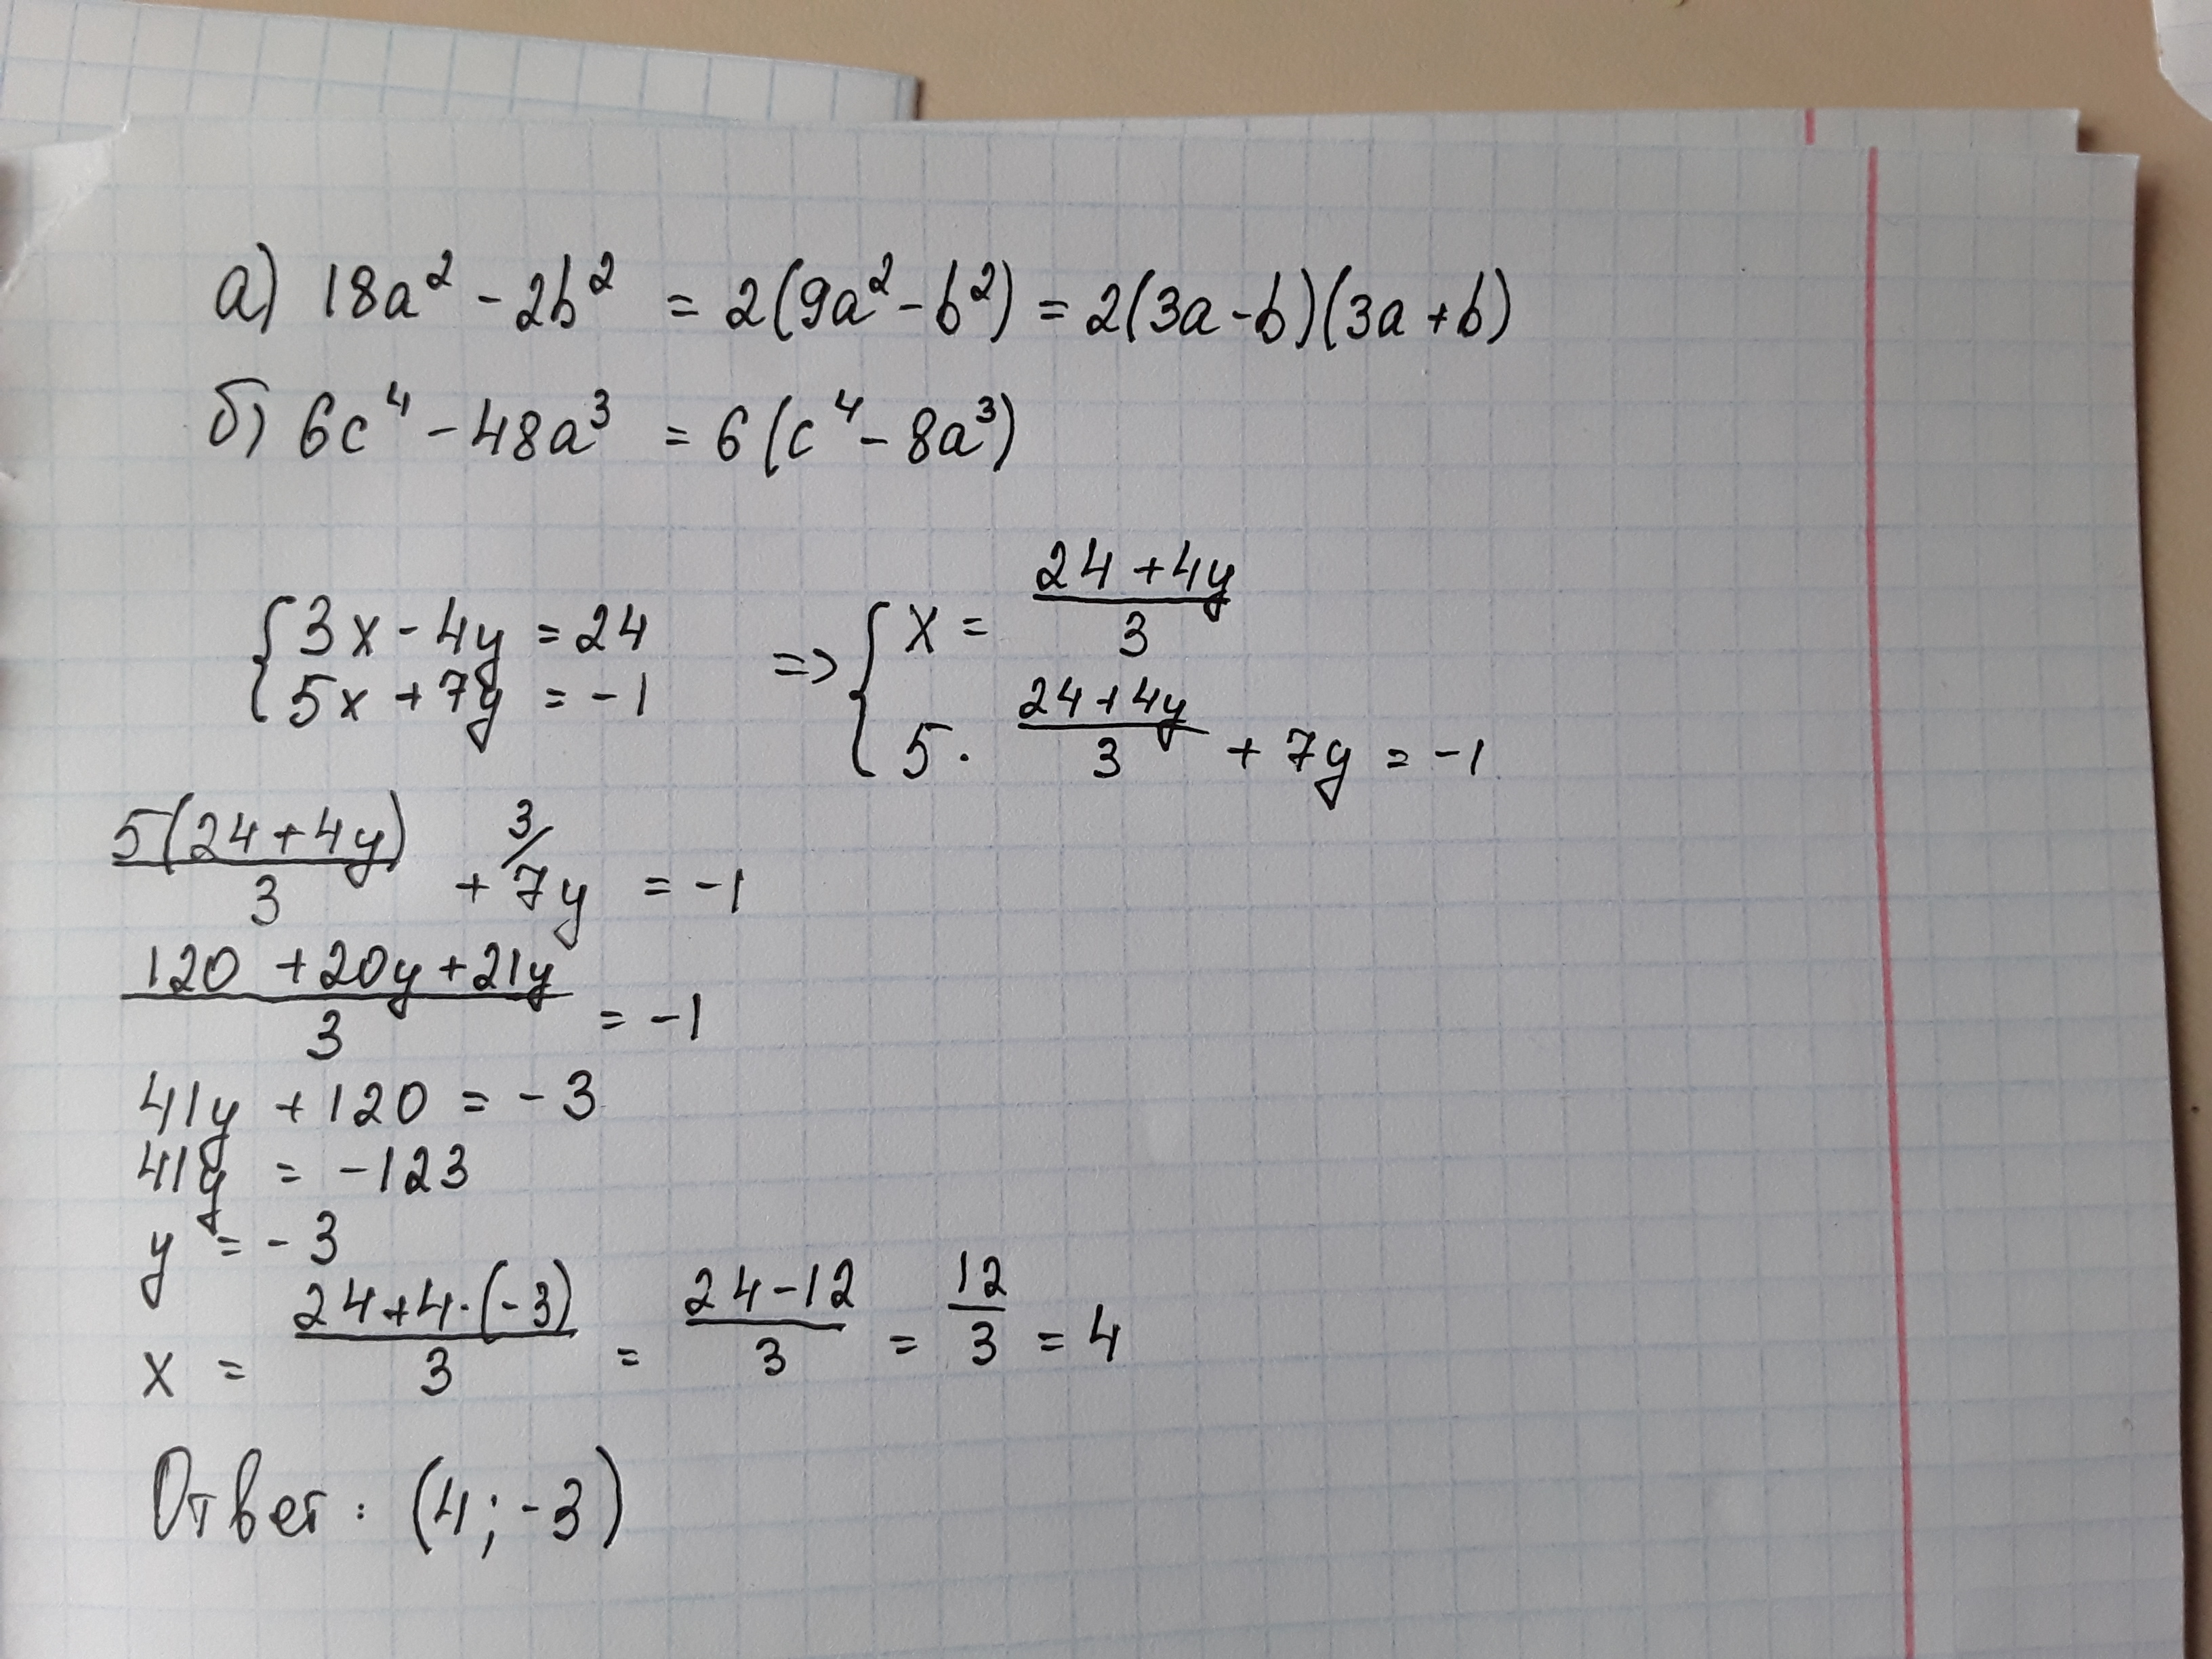 а) 18a² - 2b² = 2(9a² - b²) = 2(3a - b)(3a + b)
б) 6c⁴ - 48a³ = 6(c⁴ - 8a³)
{ 3x - 4y = 24 => { x = (24 + 4y)/3
5x + 7y = -1 5 · (24 + 4y)/3 + 7y = -1
5(24 + 4y)/3 + ³/7y = -1
(120 + 20y + 21y)/3 = -1
41y + 120 = -3
41y = -123
y = -3
x = (24 + 4·(-3))/3 = (24 - 12)/3 = 12/3 = 4
Ответ: (4; -3)